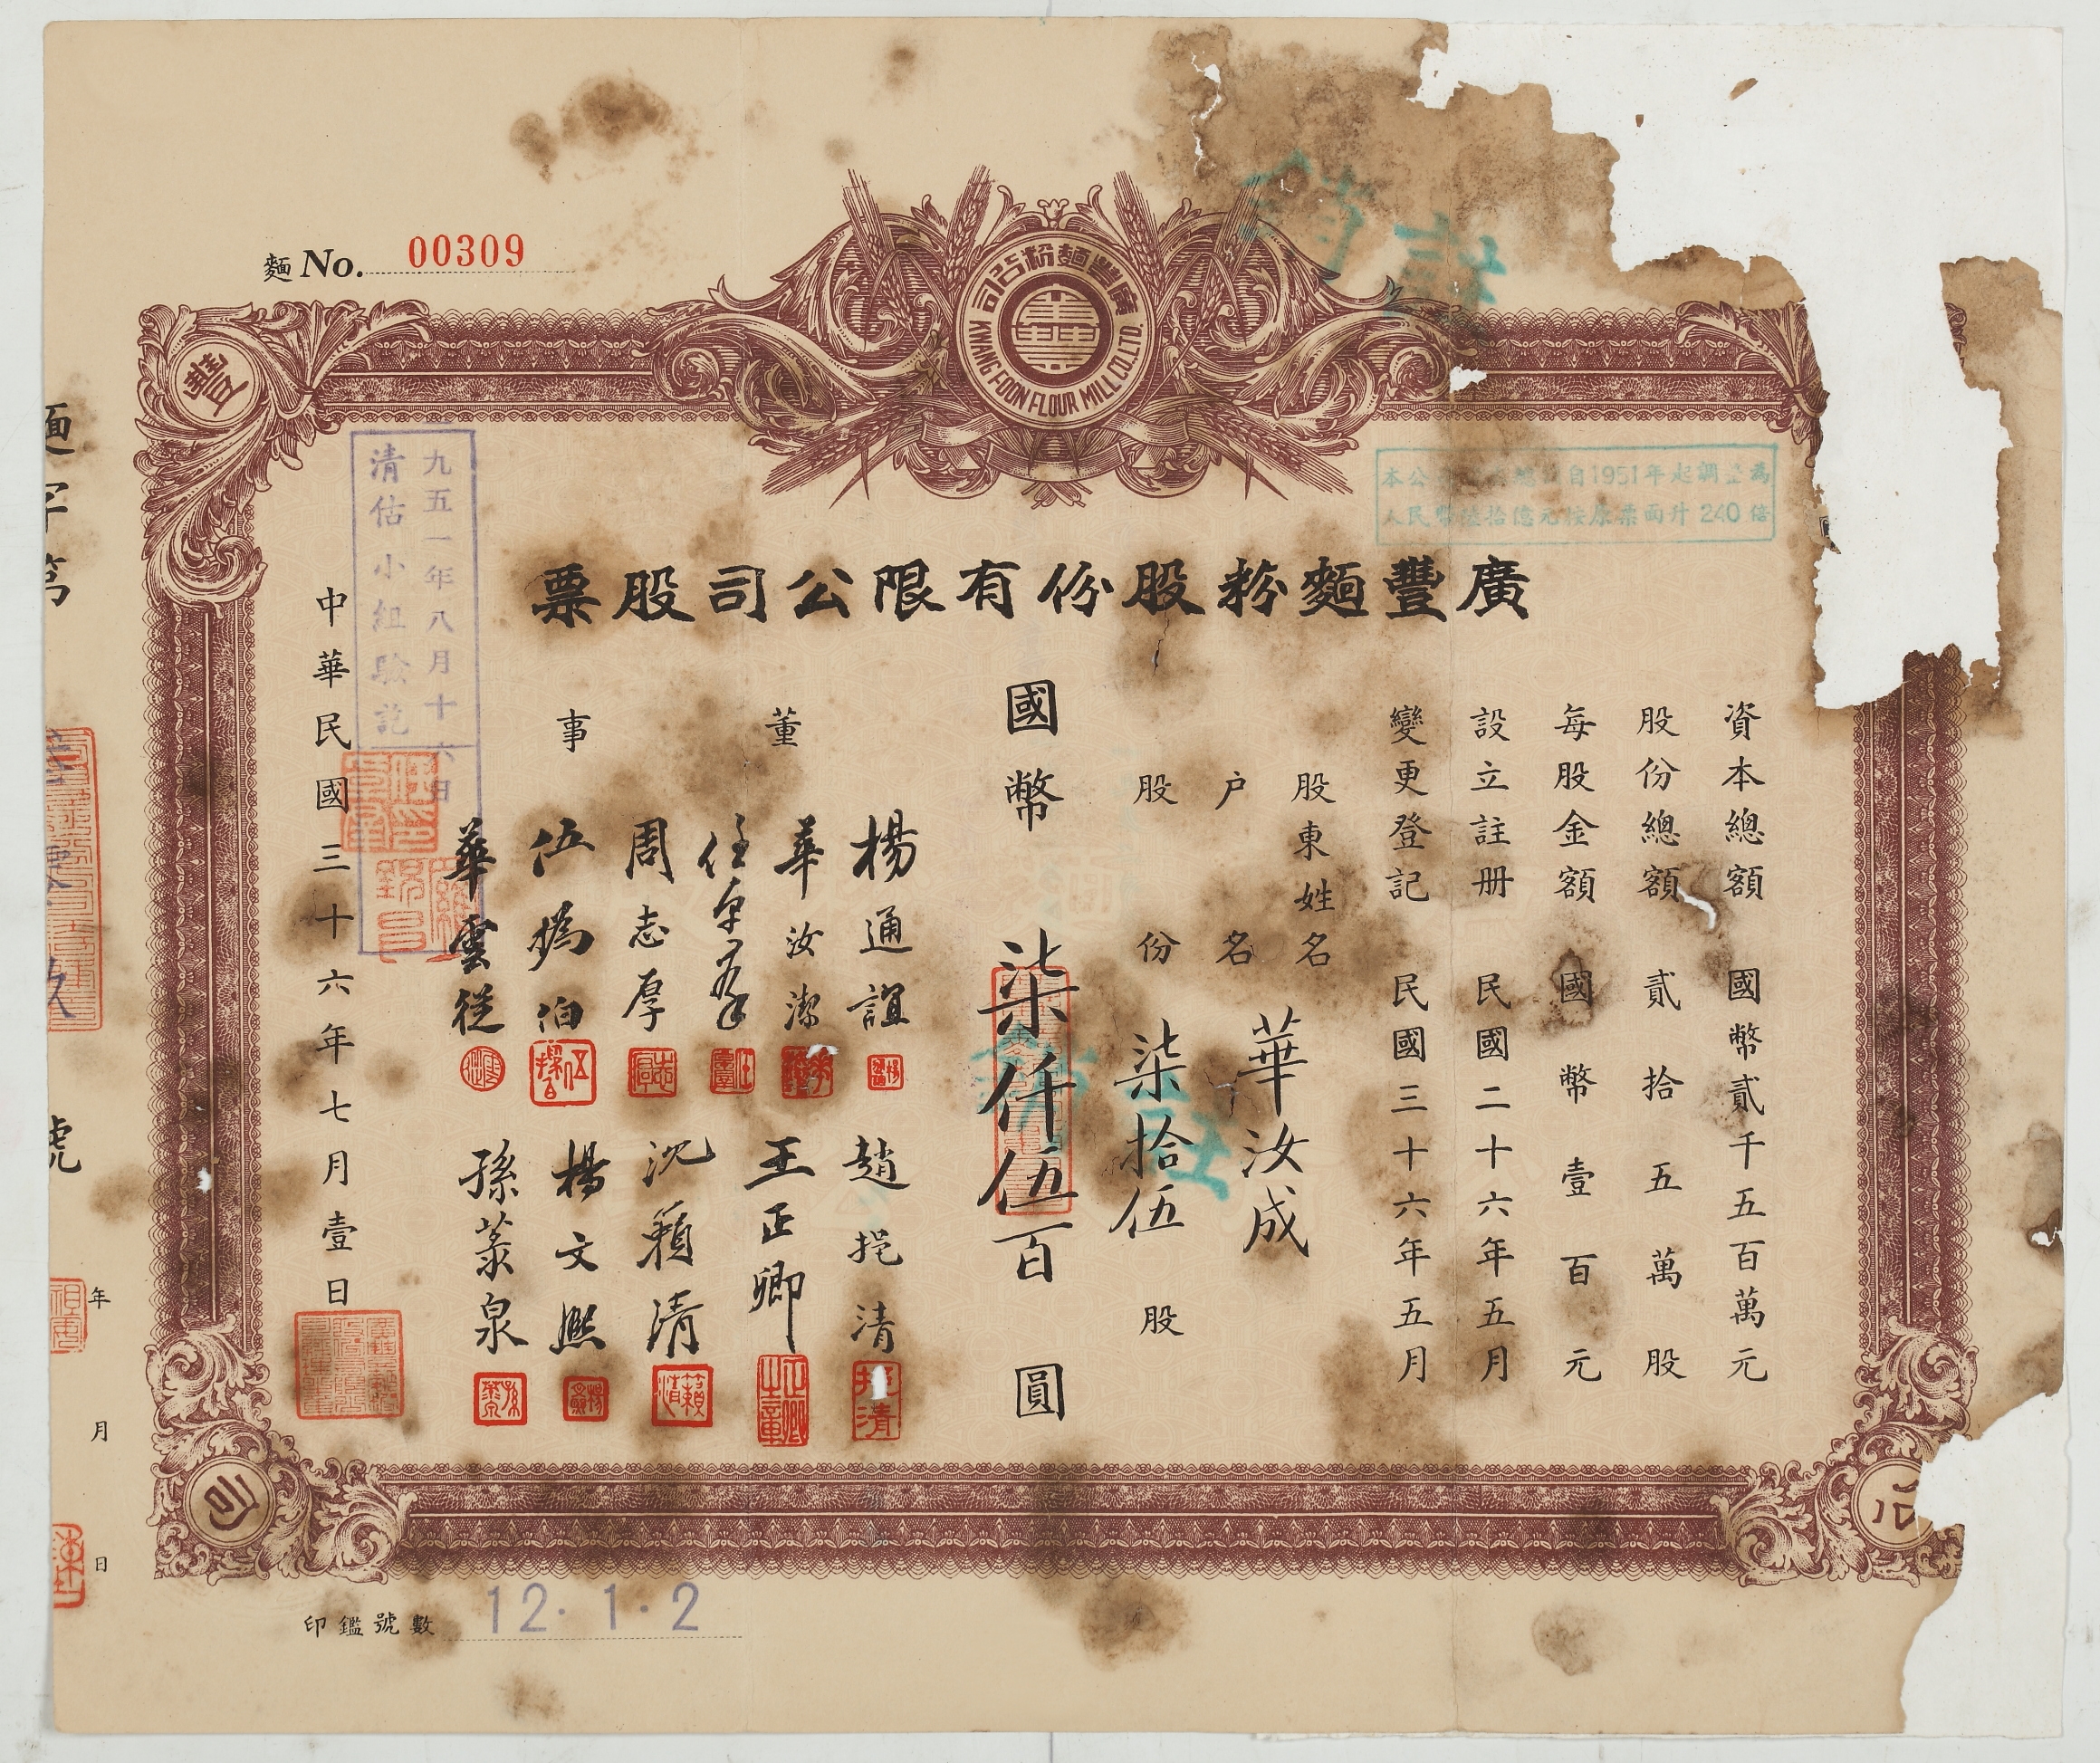 麵 No. 00309
廣豐麵粉公司
KWANG FOON FLOUR MILL CO. LTD.
豐
註
銷
本公 自1951年起調整為
人民幣 拾億元按原票面升240倍
廣豐麵粉股份有限公司股票
資本總額 國幣貳千五百萬元
股份總額 貳拾五萬股
每股金額 國幣壹百元
設立註册 民國二十六年五月
變更登記 民國三十六年五月
股東姓名 華汝成
户名
股份 柒拾伍股
國幣 柒仟伍百圓
註
銷
董事
楊通誼
華汝潔
任卓羣
周志厚
伍撝伯
華雲從
趙挹清
王正卿
沈籟清
楊文熙
孫蒃泉
中華民國三十六年七月壹日
一九五一年八月十六日
清估小組驗訖
麵字第
號
年
月
日
司
公
印鑑號數 12.1.2